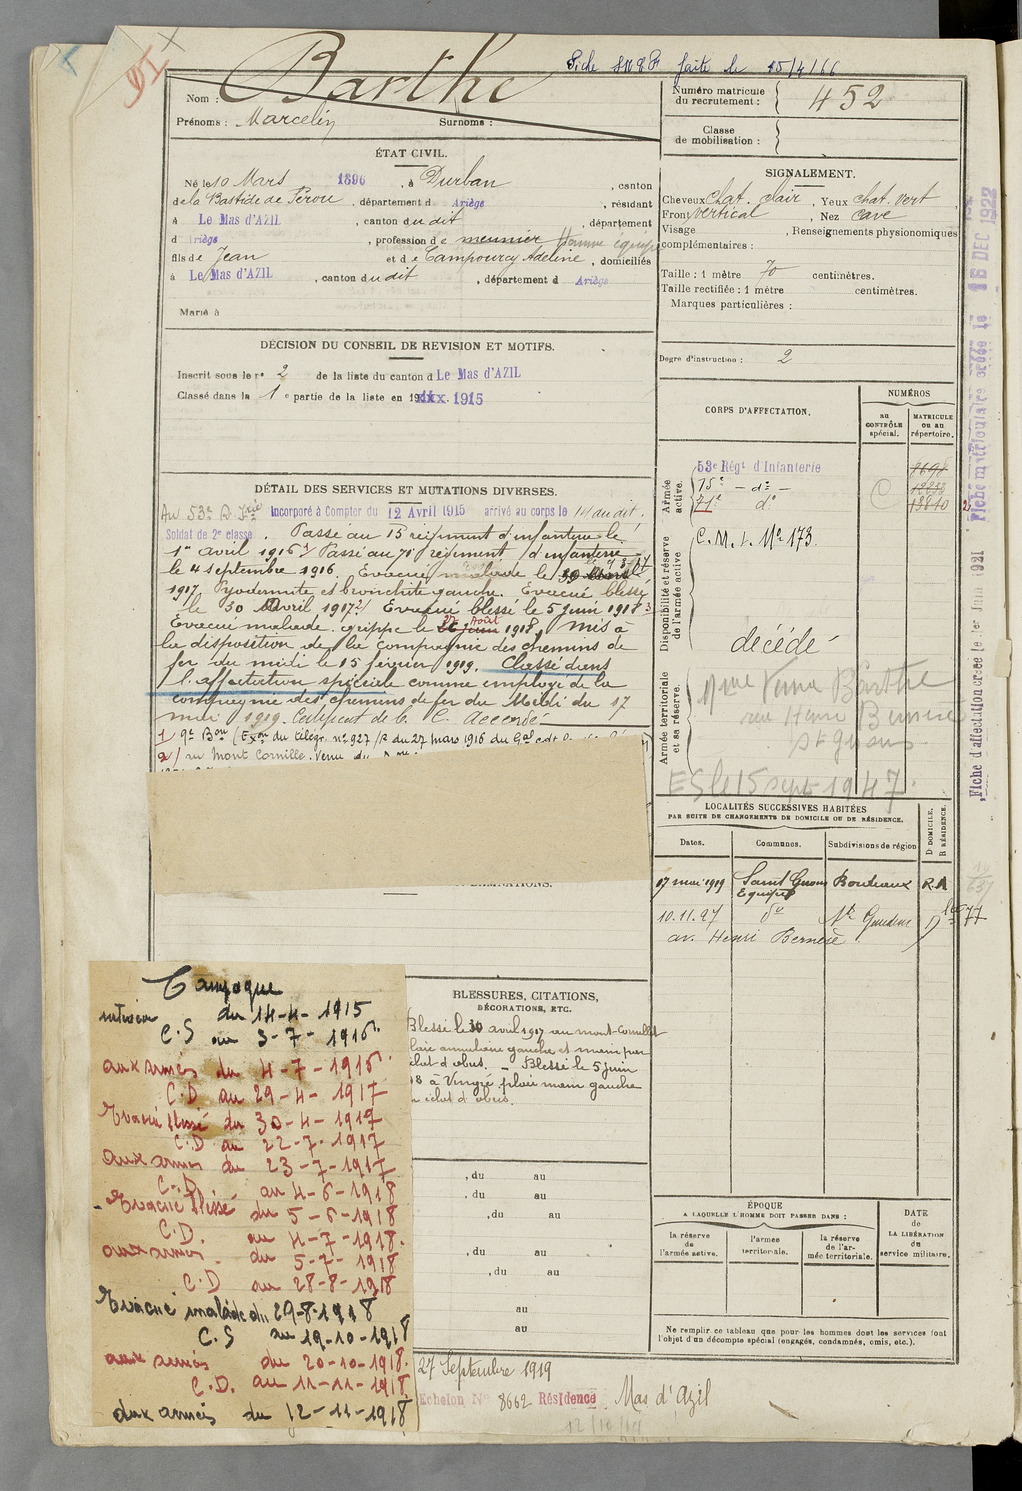 Fiche faite le 15/4/66
91
Nom : Barthe
Prénoms : Marcelin Surnoms :
Numéro matricule du recrutement : 452
Classe de mobilisation :
ÉTAT CIVIL.
Né le 10 Mars 1896, à Durban, canton
de la Bastide de Sérou, département d Ariège, résidant
à Le Mas d'AZIL, canton du dit, département
d Ariège, profession de meunier homme équipe
fils de Jean et de Campourcy Adeline, domiciliés
à Le Mas d'AZIL, canton du dit, département d Ariège
Marié à
SIGNALEMENT.
Cheveux chat. clair, Yeux chat. vert,
Front vertical, Nez cave
Visage , Renseignements physionomiques
complémentaires :
Taille : 1 mètre 70 centimètres.
Taille rectifiée : 1 mètre centimètres.
Marques particulières :
Degré d'instruction : 2
DÉCISION DU CONSEIL DE REVISION ET MOTIFS.
Inscrit sous le n° 2 de la liste du canton d Le Mas d'AZIL
Classé dans la 1e partie de la liste en 1915
CORPS D'AFFECTATION.
NUMÉROS
au CONTRÔLE spécial.
MATRICULE ou au répertoire.
Armée active.
53e Régt d'Infanterie
15e - do -
71e do
C
13810
Disponibilité et réserve de l'armée active.
C. M. I. Mi 173.
décédé
Armée territoriale et sa réserve.
Mme Veuve Barthe
rue Henri Bernère
St Girons
ES le 15 sept 1947.
DÉTAIL DES SERVICES ET MUTATIONS DIVERSES.
Au 53e R. Ie Incorporé à Compter du 12 Avril 1915 arrivé au corps le 14 du dit,
Soldat de 2e classe. Passé au 15 régiment d'infanterie le
1er avril 1916 1/ Passé au 71e régiment d'infanterie
le 4 septembre 1916. Evacué malade le
1917 Pyodermite et bronchite gauche. Evacué blessé
le 30 Avril 1917 2/ Evacué blessé le 5 juin 1918 3
Evacué malade. grippe le 27 Août 1918, Mis à
la disposition de la Compagnie des chemins de
fer du midi le 15 février 1919. Classé dans
l'affectation spéciale comme employé de la
compagnie des chemins de fer du Midi du 17
mai 1919. Certificat de b. C. Accordé
1/ 9e Bon (Exon du télégr. n° 927/R du 27 mars 1916 du Gal
2/ au Mont Cornille.
LOCALITÉS SUCCESSIVES HABITÉES
PAR SUITE DE CHANGEMENTS DE DOMICILE OU DE RÉSIDENCE.
Dates. Communes. Subdivisions de région D DOMICILE. R RÉSIDENCE.
17 mai 1919 Saint Girons Bordeaux R.
Equipe
10.11.27 do St Gaudens D
av. Henri Bernère
77
Fiche matriculaire créée le 18 DEC 1922
Fiche d'affectation créée le 1er Juin 1921
BLESSURES, CITATIONS,
DÉCORATIONS, ETC.
Blessé le 30 avril 1917 au mont-Cornillet
plaie annulaire gauche et main par
éclat d'obus. - Blessé le 5 juin
18 à Vingré plaie main gauche
éclat d'obus.
, du au
, du au
, du au
, du au
, du au
au
au
ÉPOQUE
A LAQUELLE L'HOMME DOIT PASSER DANS :
la réserve de l'armée active.
l'armée territoriale.
la réserve de l'armée territoriale.
DATE de LA LIBÉRATION du service militaire.
Ne remplir ce tableau que pour les hommes dont les services font
l'objet d'un décompte spécial (engagés, condamnés, omis, etc.).
Campagne
intérieur du 14-4-1915
C.S au 3-7-1916.
aux armées du 4-7-1916.
C.D au 29-4-1917
Evacué blessé du 30-4-1917
C.D au 22-7-1917
aux armées du 23-7-1917
C.D. au 4-6-1918
Evacué blessé du 5-6-1918
C.D. au 4-7-1918.
aux armées du 5-7-1918
C.D au 28-8-1918
Evacué malade du 29-8-1918
C.S au 19-10-1918
aux armées du 20-10-1918.
C.D. au 11-11-1918
aux armées du 12-11-1918
27 Septembre 1919
Echelon N° 8662 Résidence Mas d'Azil